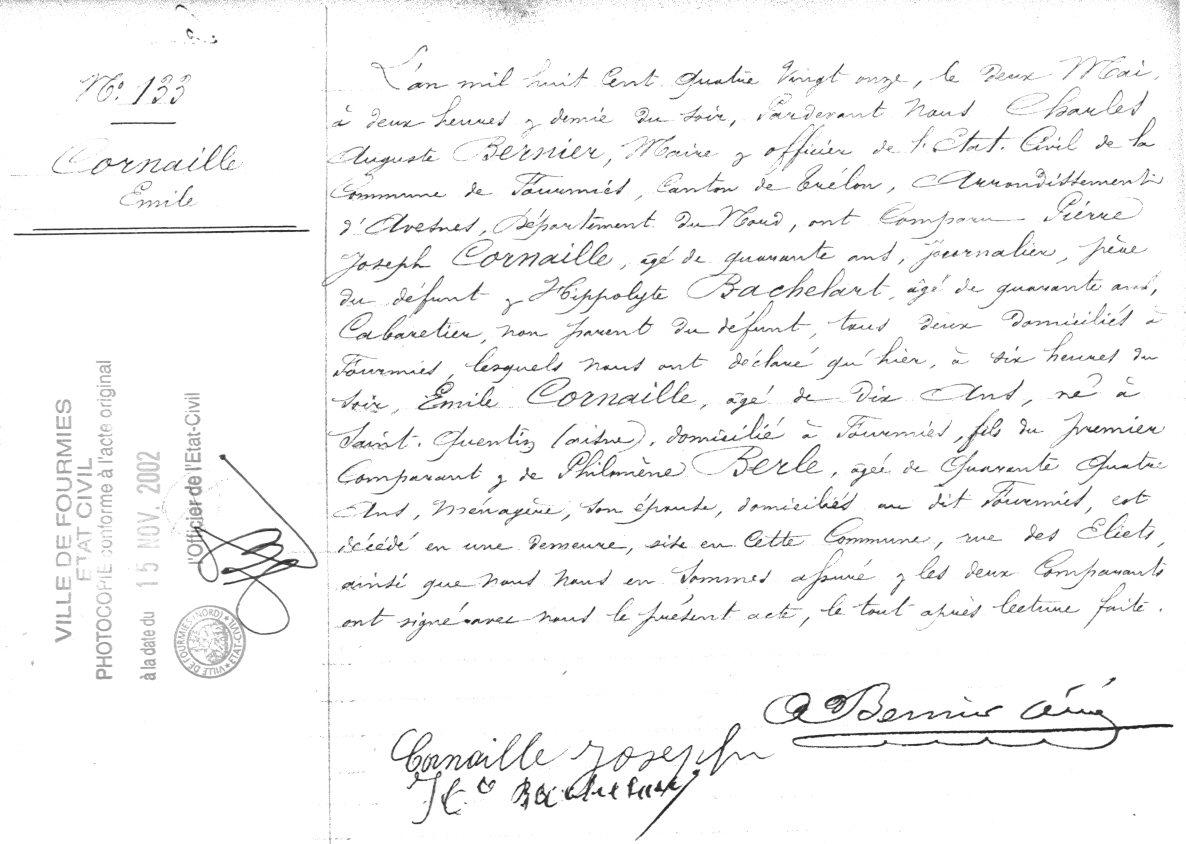 N° 133
Cornaille
Emile
L'an mil huit cent quatre vingt onze, le deux Mai,
à deux heures & demie du soir, Pardevant Nous Charles
Auguste Bernier, Maire & officier de l'Etat-Civil de la
Commune de Fourmies, Canton de Trélon, Arrondissement
d'Avesnes, Département du Nord, ont Comparu Pierre
Joseph Cornaille, âgé de quarante ans, journalier, père
du défunt & Hippolyte Bachelart, âgé de quarante ans,
Cabaretier, non parent du défunt, tous deux domiciliés à
Fourmies, lesquels nous ont déclaré qu'hier, à six heures du
soir, Emile Cornaille, âgé de Dix Ans, né à
Saint-Quentin (aisne), domicilié à Fourmies, fils du premier
Comparant & de Philomène Berle, âgée de Quarante Quatre
Ans, Ménagère, son épouse, domiciliés au dit Fourmies, est
décédé en une demeure, site en Cette Commune, rue des Eliets,
ainsi que nous nous en sommes assuré & les deux Comparants
ont signé avec nous le présent acte, le tout après lecture faite.
A Bernier
Cornaille Joseph
VILLE DE FOURMIES
ETAT CIVIL
PHOTOCOPIE conforme à l'acte original
à la date du 15 NOV. 2002
l'Officier de l'Etat-Civil
VILLE DE FOURMIES (NORD) ★ ETAT-CIVIL ★